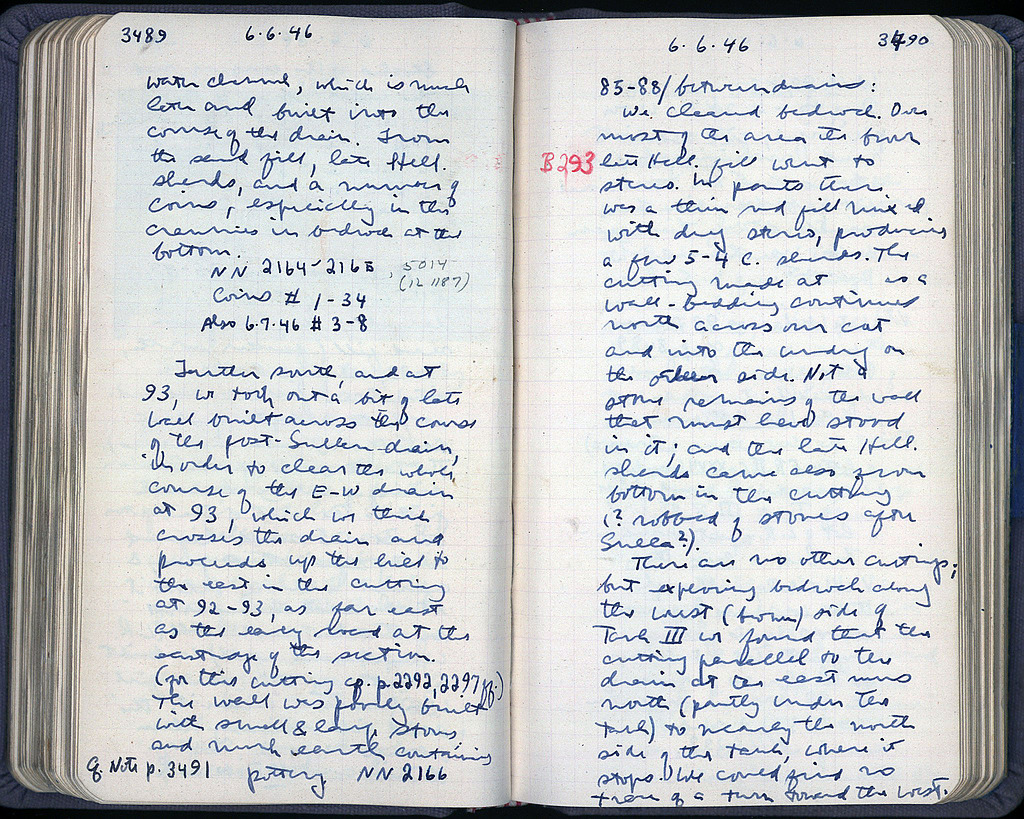 3489 6.6.46
water channel, which is much
later and built into the
course of the drain. From
the sand fill, late Hell.
sherds, and a number of
coins, especially in the
crannies in bedrock at the
bottom.
NN 2164-2165, 5014
(12 1187)
Coins # 1-34
Also 6.7.46 # 3-8
Further south, and at
93, we took out a bit of late
wall built across the course
of the post-Sullan drain,
in order to clear the whole
course of the E-W drain
at 93, which we think
crosses the drain and
proceeds up the hill to
the east in the cutting
at 92-93, as far east
as the early road at the
east edge of the section.
(for this cutting cf. p. 2292, 2297 ff.)
The wall was poorly built
with small & large stones
and much earth containing
pottery NN 2166
cf. Note p. 3491
6.6.46 3490
85-88/ between drains:
We cleaned bedrock. Over
most of the area the brown
B293 late Hell. fill went to
stereo. In points there
was a thin red fill mixed
with dug stereo, producing
a few 5-4 C. sherds. The
cutting made at as a
wall-bedding continued
north across our cut
and into the on
the other side. Not a
stone remains of the wall
that must have stood
in it; and the late Hell.
sherds came also from
bottom in the cutting
(? robbed of stones after
Sulla?).
There are no other cuttings;
but exploring bedrock along
the west (brown) side of
Tank III we found that the
cutting parallel to the
drain at the east runs
north (partly under the
tank) to nearly the north
side of the tank, where it
stops. We could find no
trace of a turn toward the west.